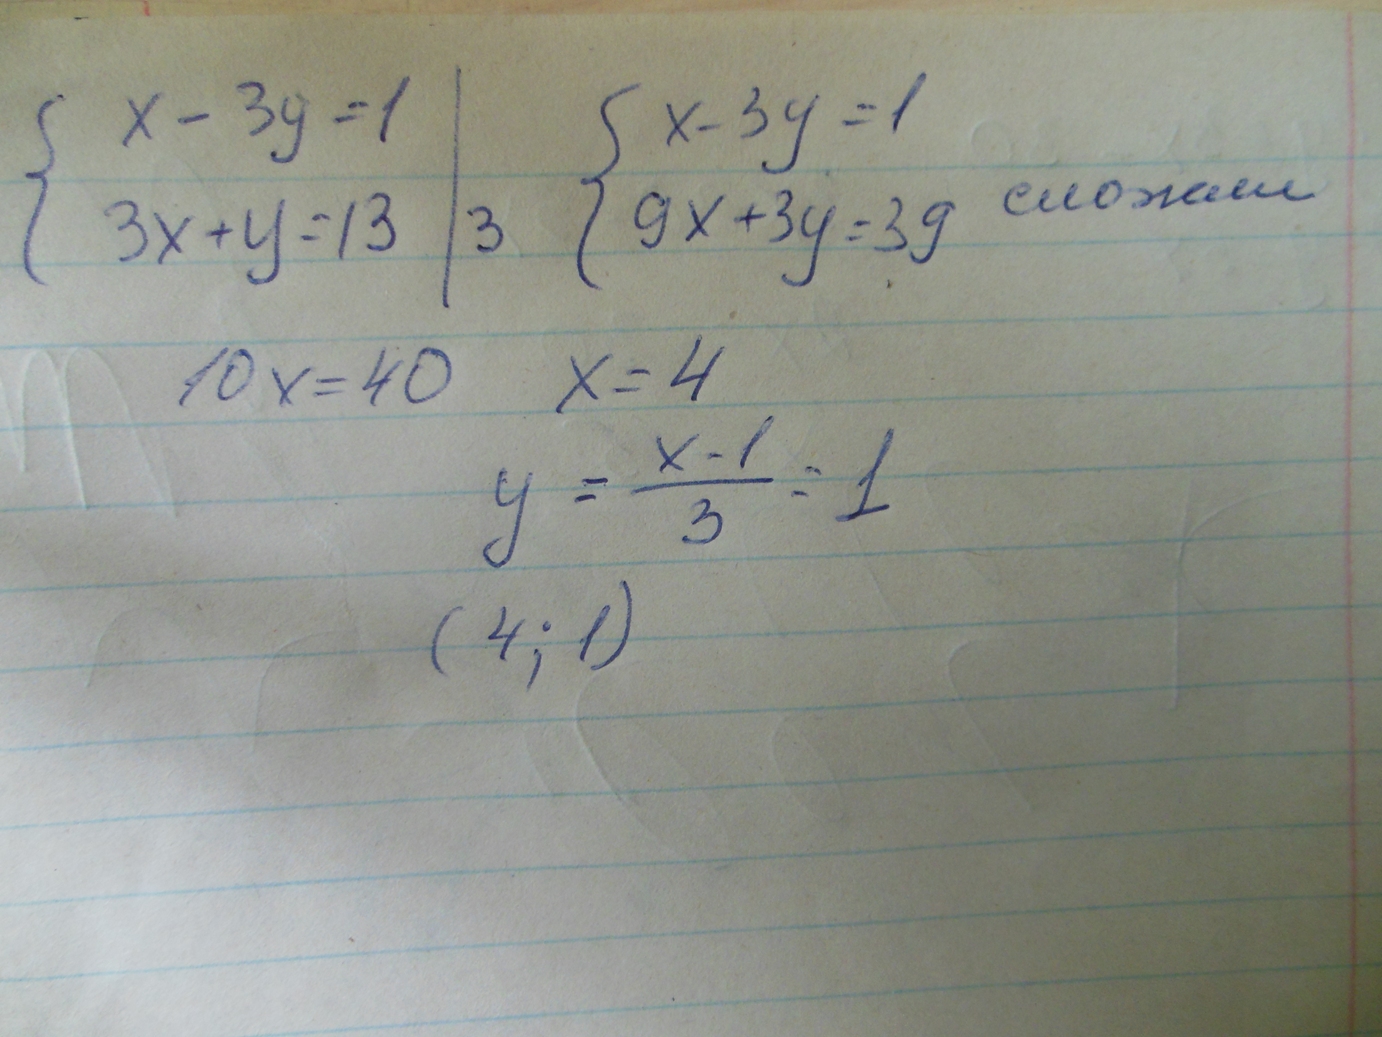 { x - 3y = 1 | { x - 3y = 1
3x + y = 13 | 3 9x + 3y = 39 сложим
10x = 40 x = 4
y = x - 1 / 3 = 1
(4; 1)